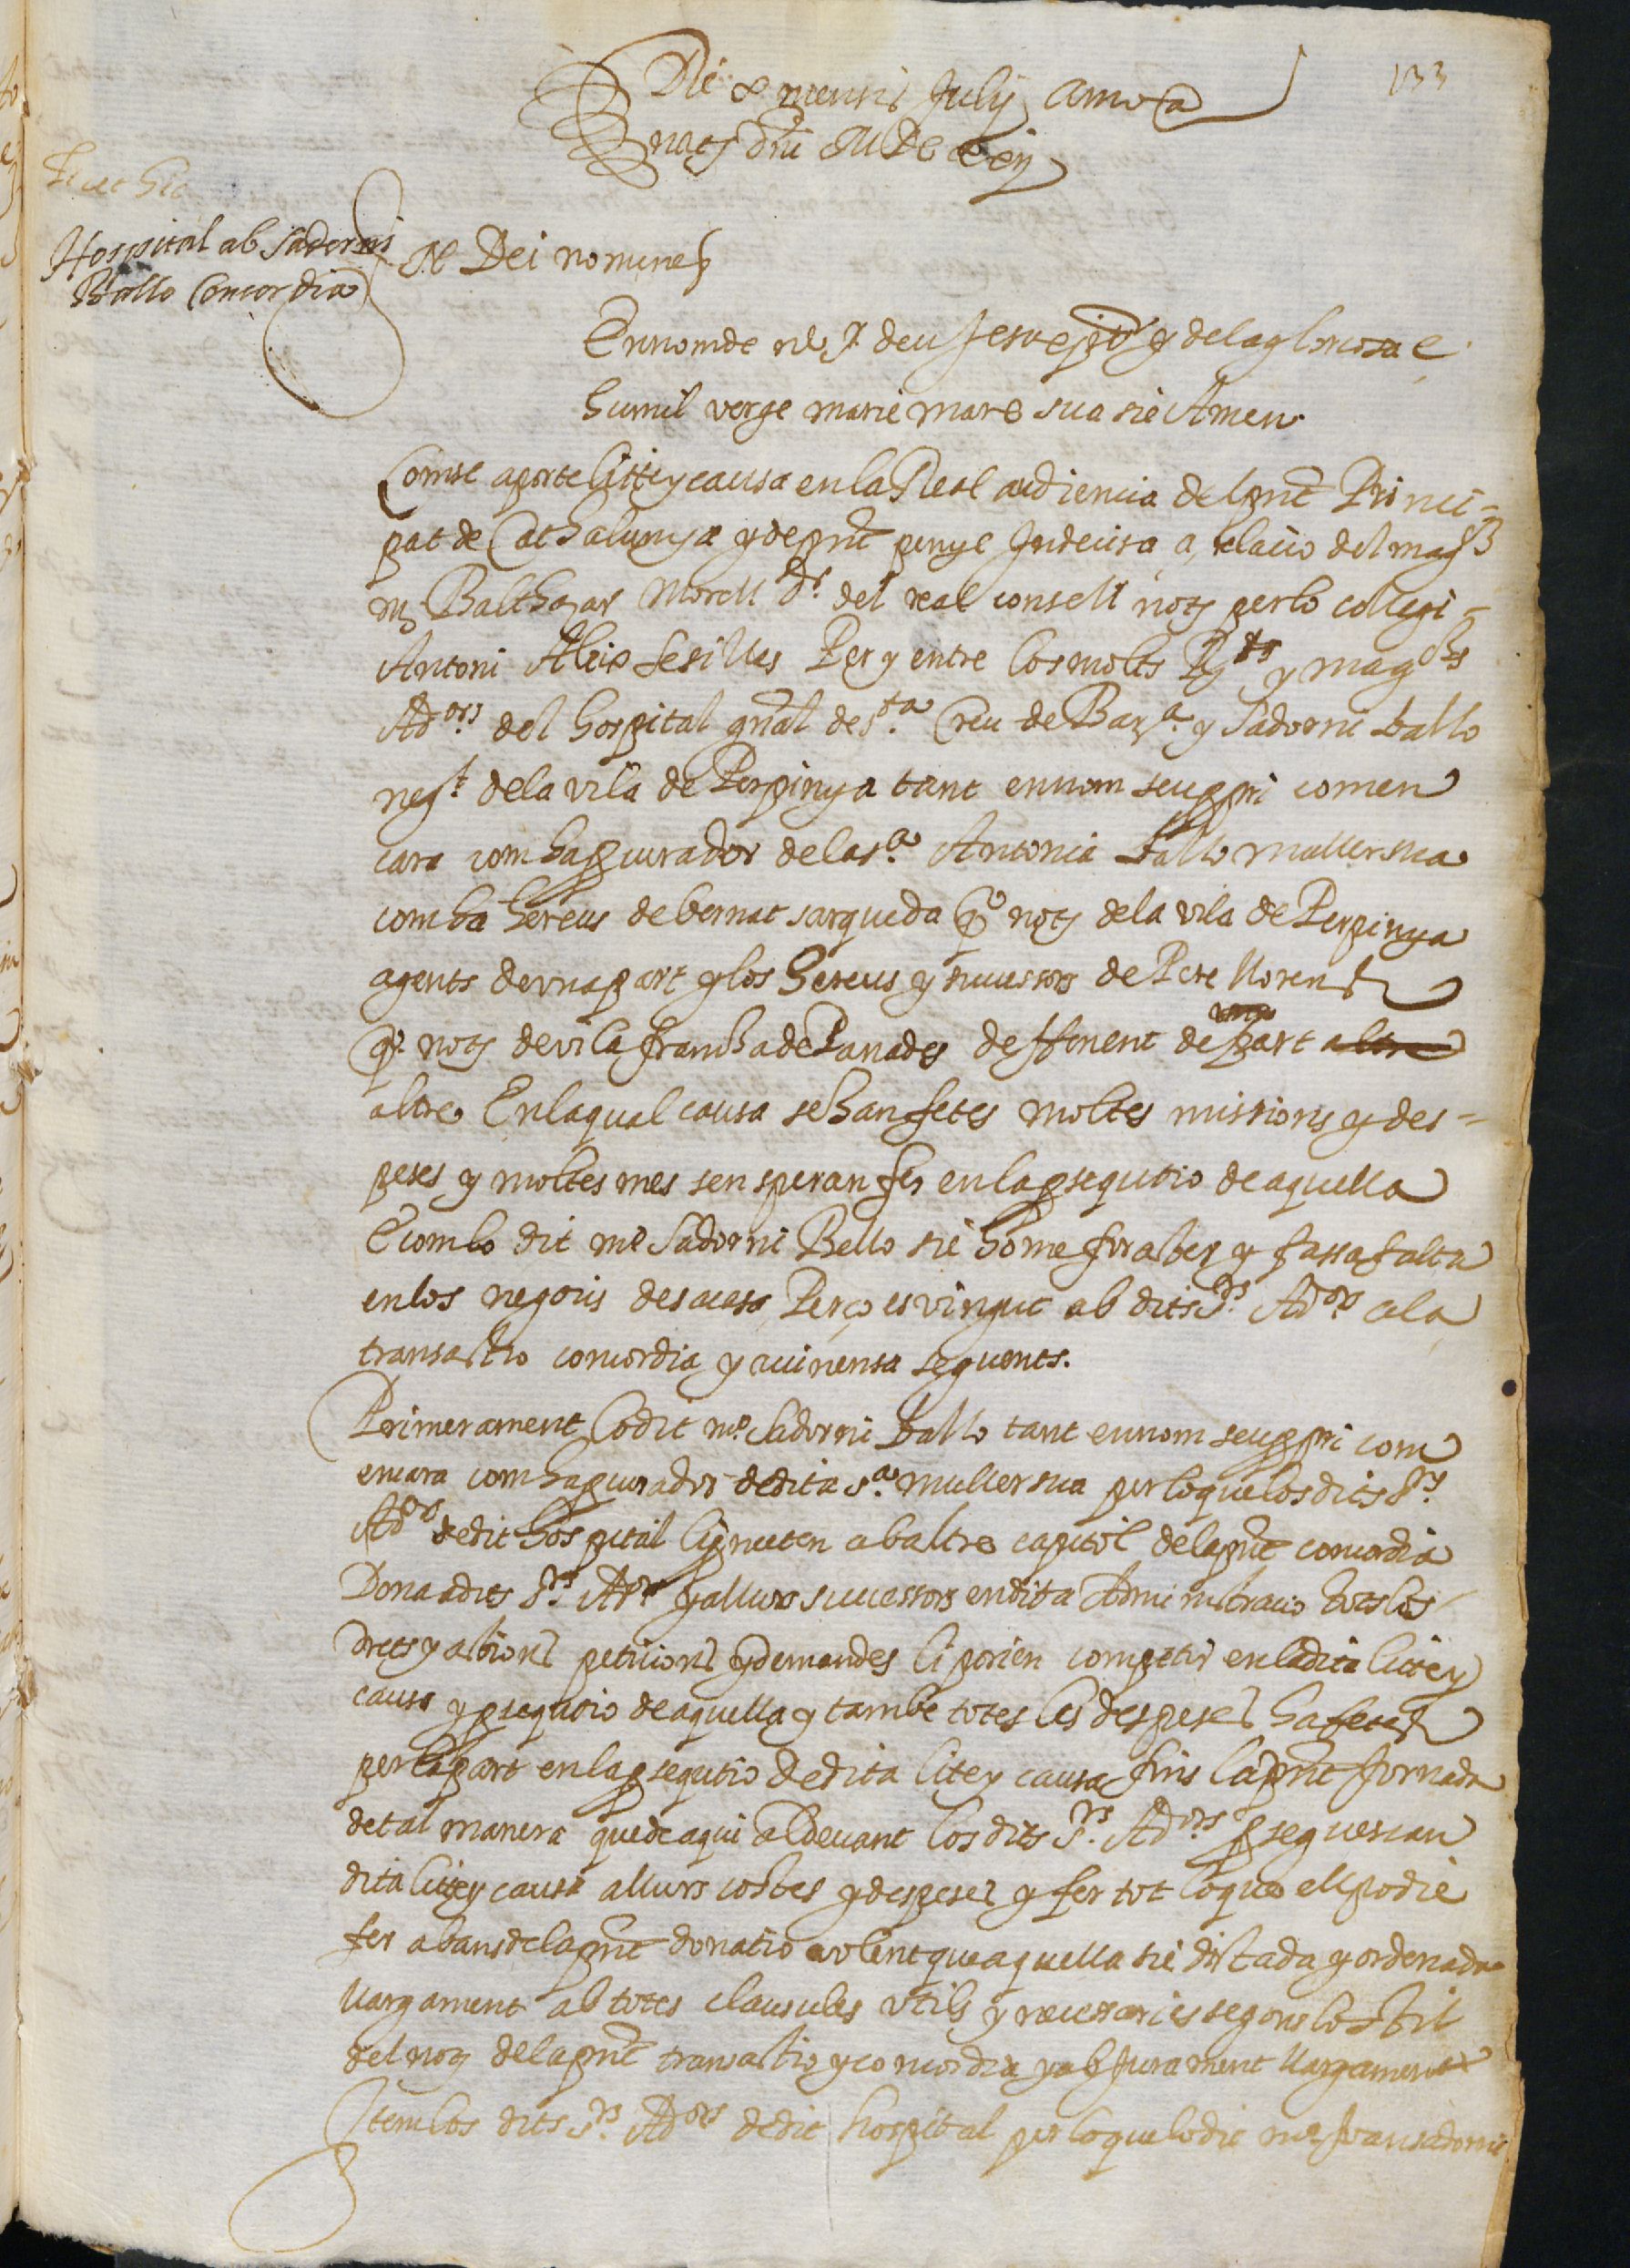 133
Die x mensis Julij anno a
nat. dni MDC
Hospital ab Sadorni
Ballo Concordia
Dei nomine
En nom de nre Sr. deu Jesu xpt y dela gloriosa e
humil verge marie mare sua sie Amen.
Com se aporte litte y causa en la Real audiencia del pnt Princi-
pat de Cathalunya y de pnt penge Indecisa a relacio del magch
mº Balthazar Morell dr. del real consell notj per lo collegi-
Antoni Aleix Sesilles Per y entre los molts Rts y magchs
Adors del hospital gnal de sta. Creu de Bara. y Sadorni ballo
negt. dela vila de Perpinya tant en nom seu ppri com en
cara com ha pcurador dela sa. Antonia ballo muller sua
com ha hereus de bernat sarqueda q notj dela vila de Perpinya
agents de una part y los hereus y successors de Pere llorens
q. notj de vila francha de Panades deffenent de part altre
una
altre En laqual causa se han fetes moltes missions y des-
peses y moltes mes sen speran fer en la psequtio de aquella
E com lo dit mº Sadorni Bello sie home foraster y fassa falta
en los negocis de sa casa Perço es vingut ab dits Srs. Adors a la
transactio concordia y avinensa seguents.
Primerament lo dit mº. Sadorni ballo tant en nom seu ppri com
encara com ha pcurador de dita sa. muller sua per lo que los dits Srs.
Adors de dit hospital li pmeten ab altre capitol dela pnt concordia
Dona a dits Srs. Adrs y a llurs successors en dita Administracio tots los
drets y actions peticions y demandes li porien competir en la dita litte y
causa y psequtio de aquella y tambe totes les despeses ha fetes
per la part en la psequtio de dita lite y causa fins la pnt Jornada
de tal manera que de aqui al devant los dits Srs. Adors pseguescan
dita litte y causa a llurs costes y despeses y fer tot lo que ell podie
fer abans dela pnt donatio volent que aquella sie dictada y ordenada
llargament ab totes clausules utils y necessaries segons lo stil
del notj dela pnt transactio y concordia y ab Jurament llargament
Item los dits Srs. Adors de dit hospital per lo que lo dit mº Joan sadorni